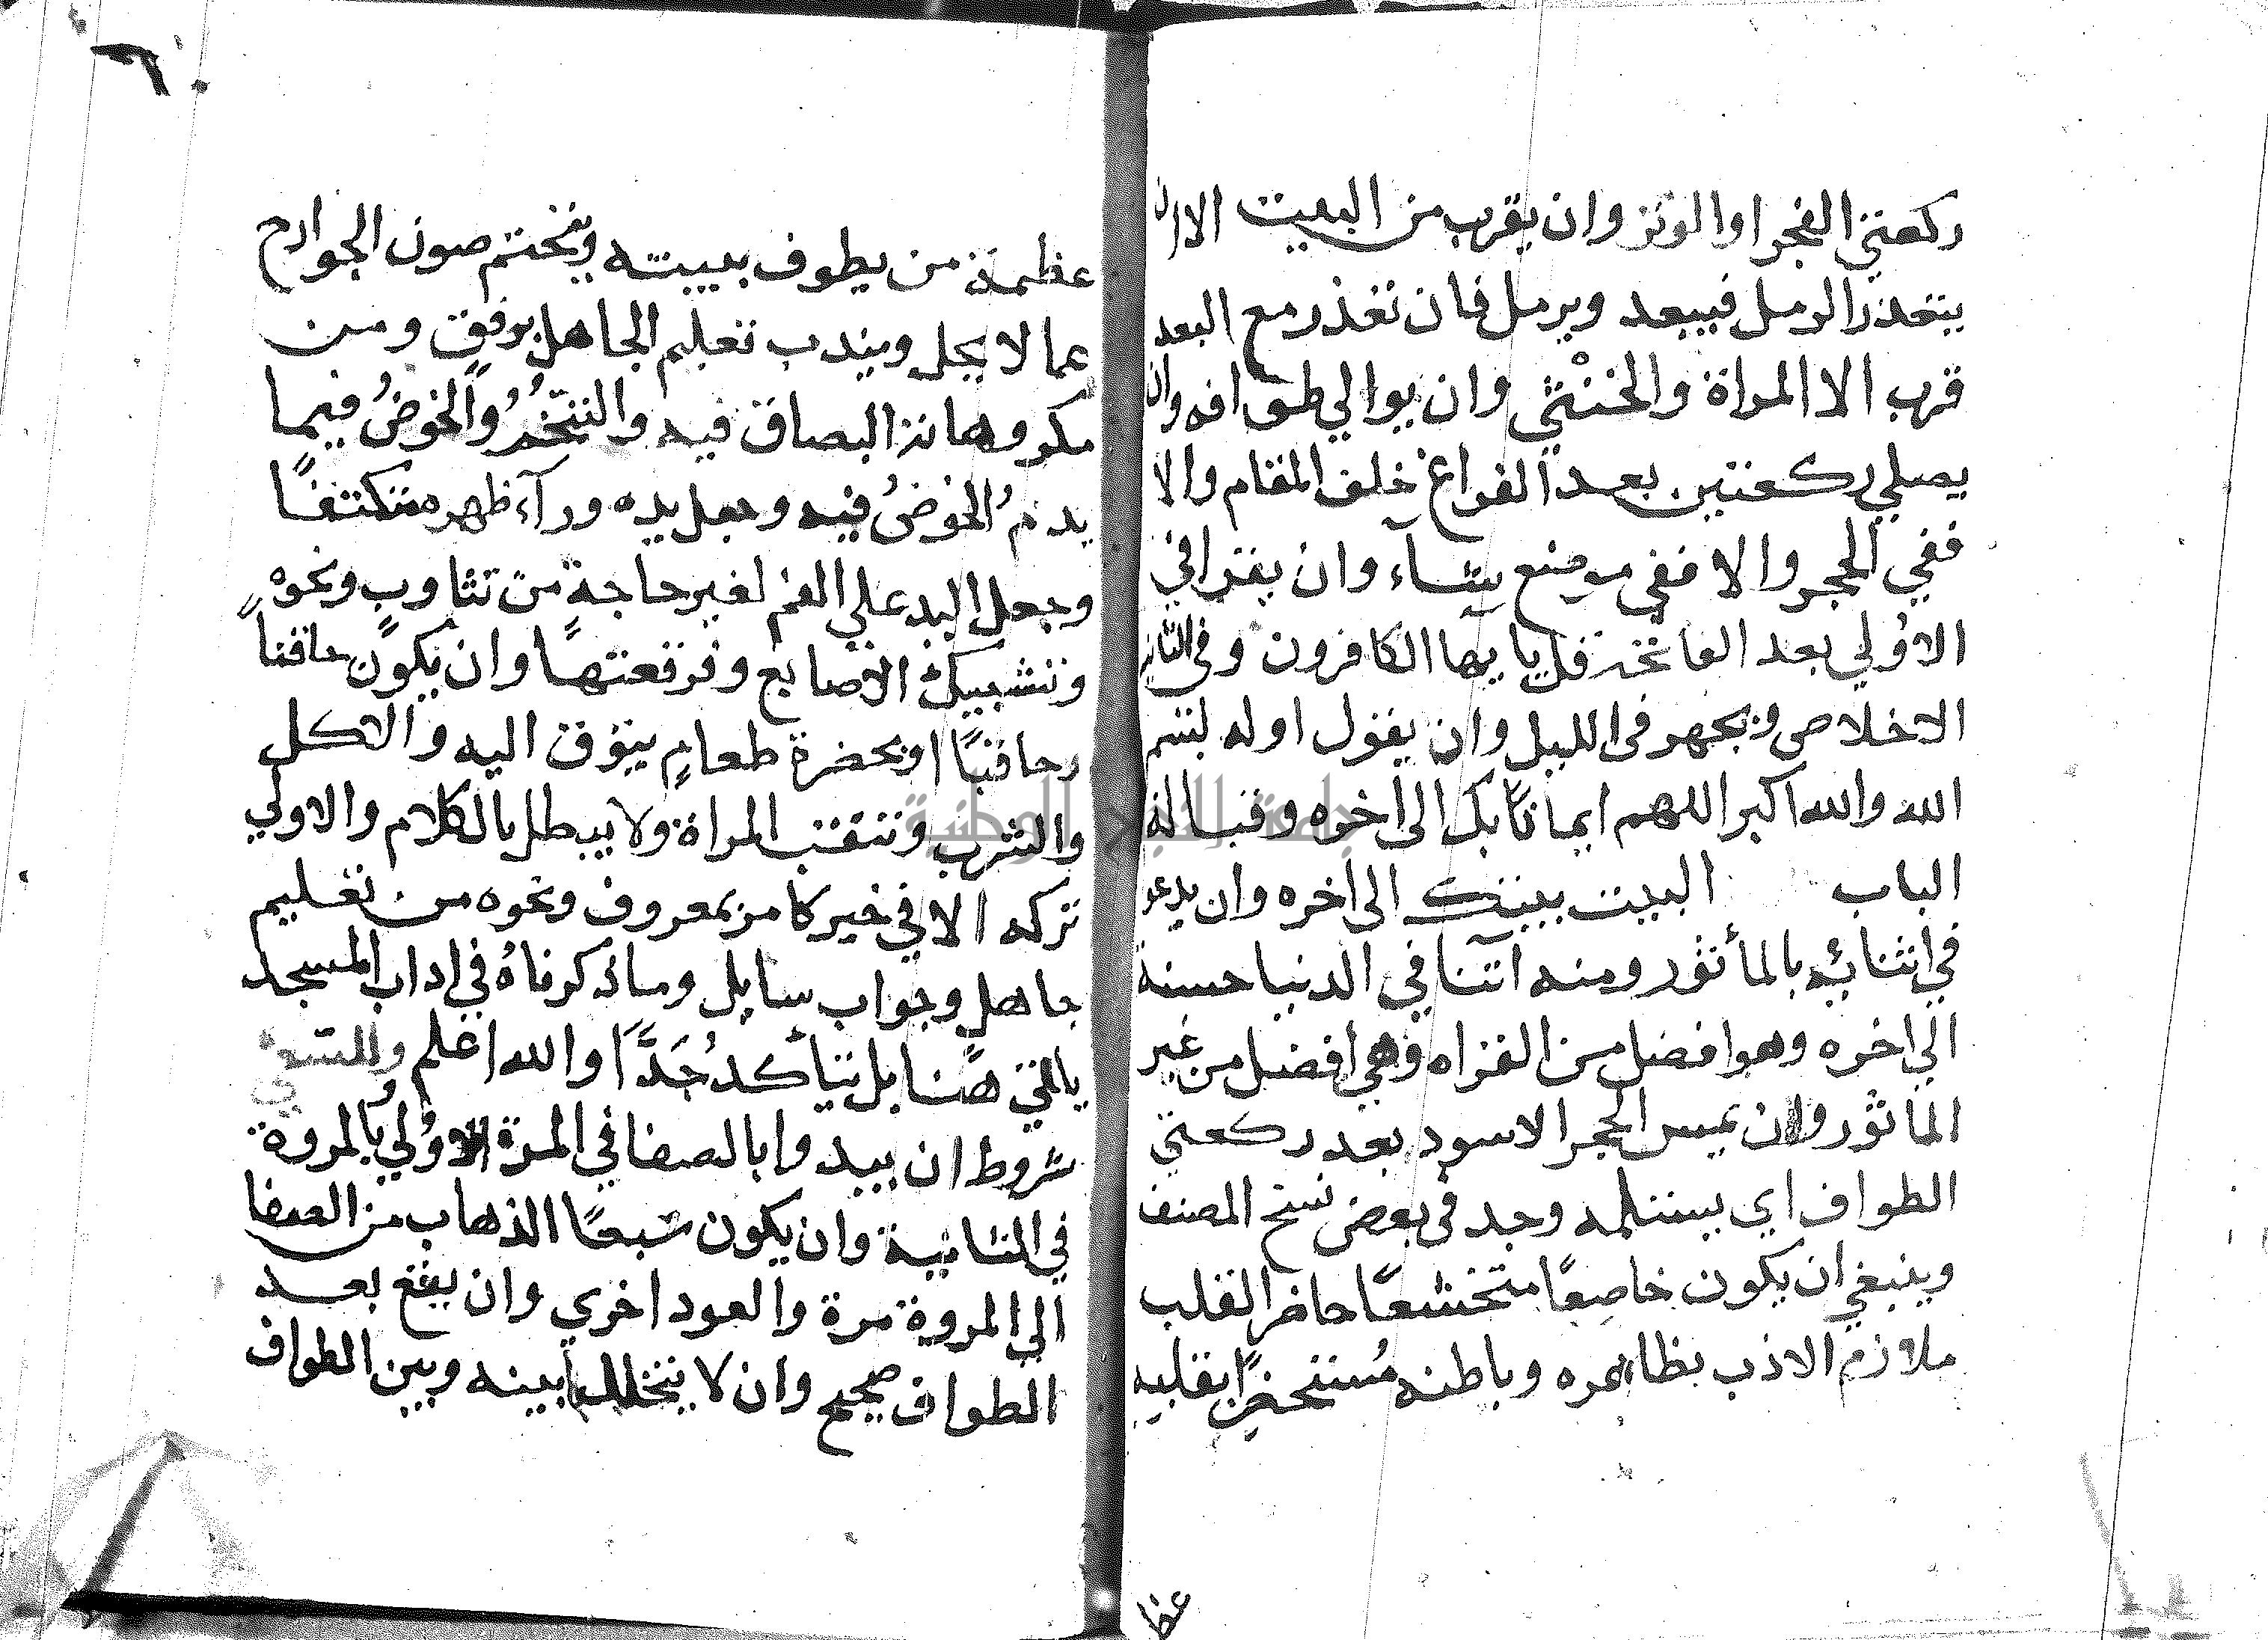 ركعتي الفجر او الوتر وان يقرب من البيت الا ان
يتعذر الرمل فيبعد ويرمل فان تعذر مع البعد
قرب الا المراة والخنْثي وان يوالي طوافه وان
يصلي ركعتين بعد الفراغ خلف المقام والا
ففي الحجر والا ففي موضع يشآء وان يقرا في
الاوُلي بعد الفاتحة قل يا يها الكافرون وفي الثانية
الاخلاص ويجهر في الليل وان يقول اوله بسم
الله والله اكبر اللهم ايمانًا بك الى اخره وقبالة
الباب البيت بيتك الى اخره وان يدعو
في اثنائه بالمأثور ومنه آتنا في الدنيا حسنة
الي اخره وهو افضل من القراه وهي افضل من غير
الماثور وان يمس الحجر الاسود بعد ركعتي
الطواف اي يستلمه وجد في بعض نسخ المصنف
وينبغي ان يكون خاضِعًا متخشعًا حاضر القلب
ملازم الادب بظاهره وباطنه مُستحضرًا بقلبه
عظ
٦٠
عظمة من يطوف ببيته ويتحتم صون الجوارح
عما لا يحل ويندب تعليم الجاهل برفق ومن
مكروهاته البصاق فيه والتنخُّم والخوضُ فيما
يذمُ الخوضُ فيه وجعل يده ورآء ظهره متكتفًا
وجعل اليد علي الفم لغير حاجةٍ من تثاوبٍ ونحوه
وتشبيك الاصابع وفرقعتها وان يكون حاقناً
وحاقبًا او بحضرة طعامٍ يتوق اليه والاكل
والشرب وتنقب المراة ولا يبطل بالكلام والاولي
تركه الا في خير كامر بمعروف ونحوه من تعليم
جاهلٍ وجواب سايل وما ذكرناهُ في اداب المسجد
ياتي هنا بل يتأكد جُدَّاً والله اعلم وللسعي
شروط ان يبدوا بالصفا في المرة الاوُلي وبالمروة
في الثانية وان يكون سبعًا الذهاب من الصفا
الي المروة مرة والعود اخري وان يقع بعد
الطواف صحيح وان لا يتخلل بينه وبين الطواف
جامعة النجاح الوطنية